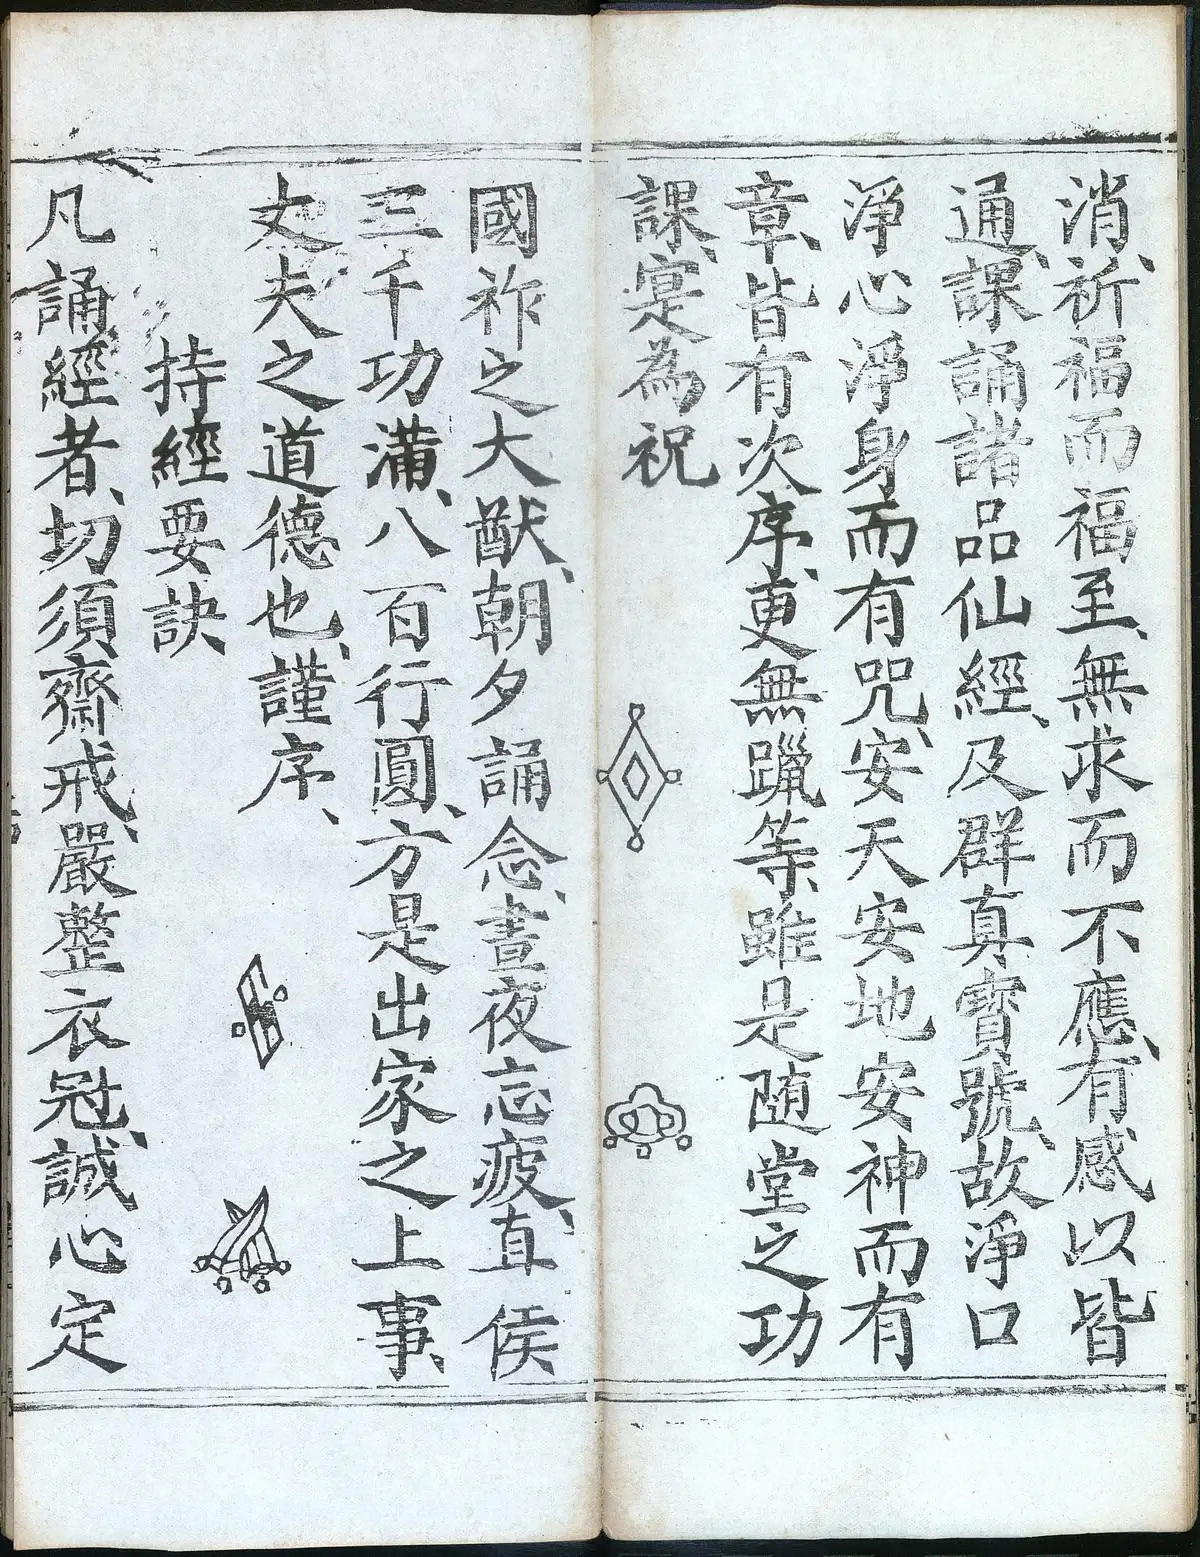 消、祈福而福至、無求而不應、有感以皆
通、課誦諸品仙經、及群真寳號、故淨口
淨心淨身而有咒、安天安地安神而有
章、皆有次序、更無躐等、雖是随堂之功
課、寔為祝
國祚之大猷、朝夕誦念、晝夜忘疲、直俟
三千功滿、八百行圓、方是出家之上事、
丈夫之道德也、謹序、
持經要訣
凡誦經者、切須齋戒、嚴整衣冠、誠心定